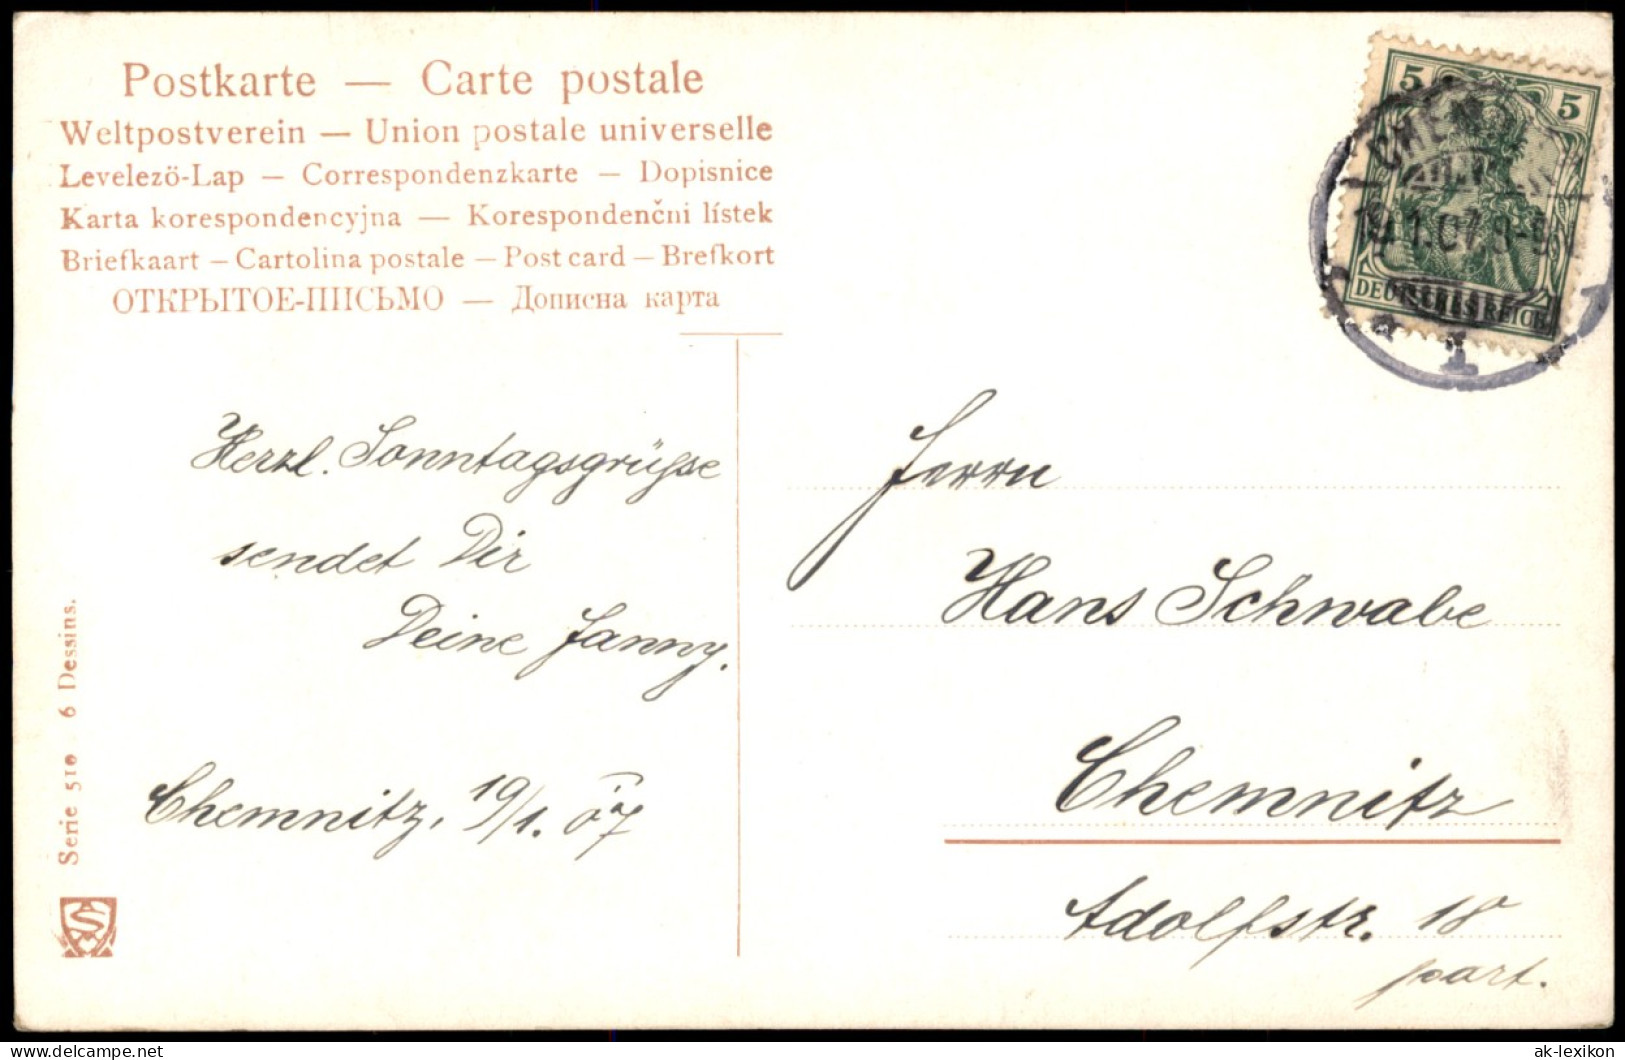 Postkarte — Carte postale
Weltpostverein — Union postale universelle
Levelezö-Lap — Correspondenzkarte — Dopisnice
Karta korespondencyjna — Korespondenčni lístek
Briefkaart — Cartolina postale — Post card — Brefkort
ОТКРЫТОЕ-ПИСЬМО — Дописна карта
5 5
CHEMNITZ
19.1.07.
DEUTSCHES REICH
1
Herzl. Sonntagsgrüsse
sendet Dir
Deine Fanny.
Chemnitz, 19/1. 07
Herrn
Hans Schwabe
Chemnitz
Adolfstr. 18
part.
Serie 510 6 Dessins.
delcampe.net
ak-lexikon